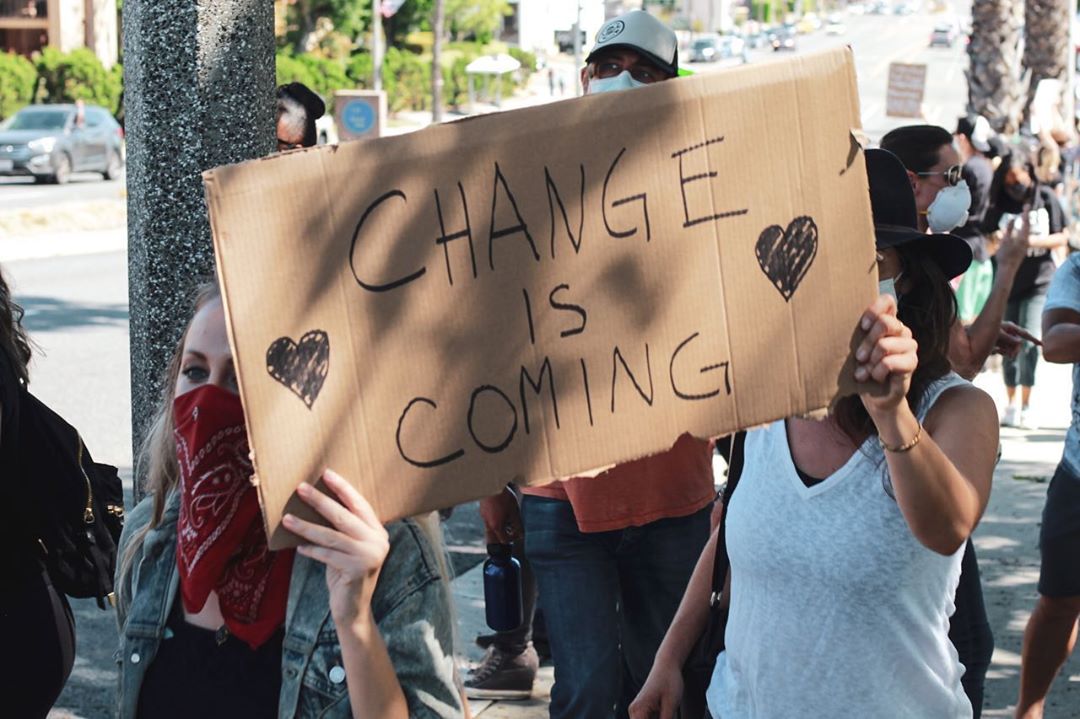 CHANGE
IS
COMING